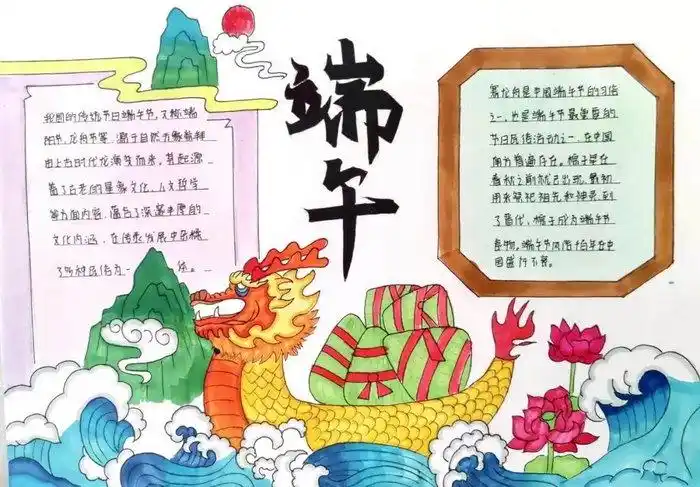 端午
我国的传统节日端午节,又称端
阳节,龙舟节等,源于自然天象崇拜
由上古时代龙演变而来,其起源
着了古老的星象文化,人文哲学
等方面内容,蕴含了深邃丰厚的
文化内涵,在传承发展中杂糅
了多种民俗为一体。
赛龙舟是中国端午节的习俗
之一,也是端午节最重要的
节日民俗活动之一,在中国
南方普遍存在。粽子早在
春秋之前就已出现,最初
用来祭祀祖先和神灵,到
了晋代,粽子成为端午节
食物。端午节风俗千百年在中
国盛行不衰。